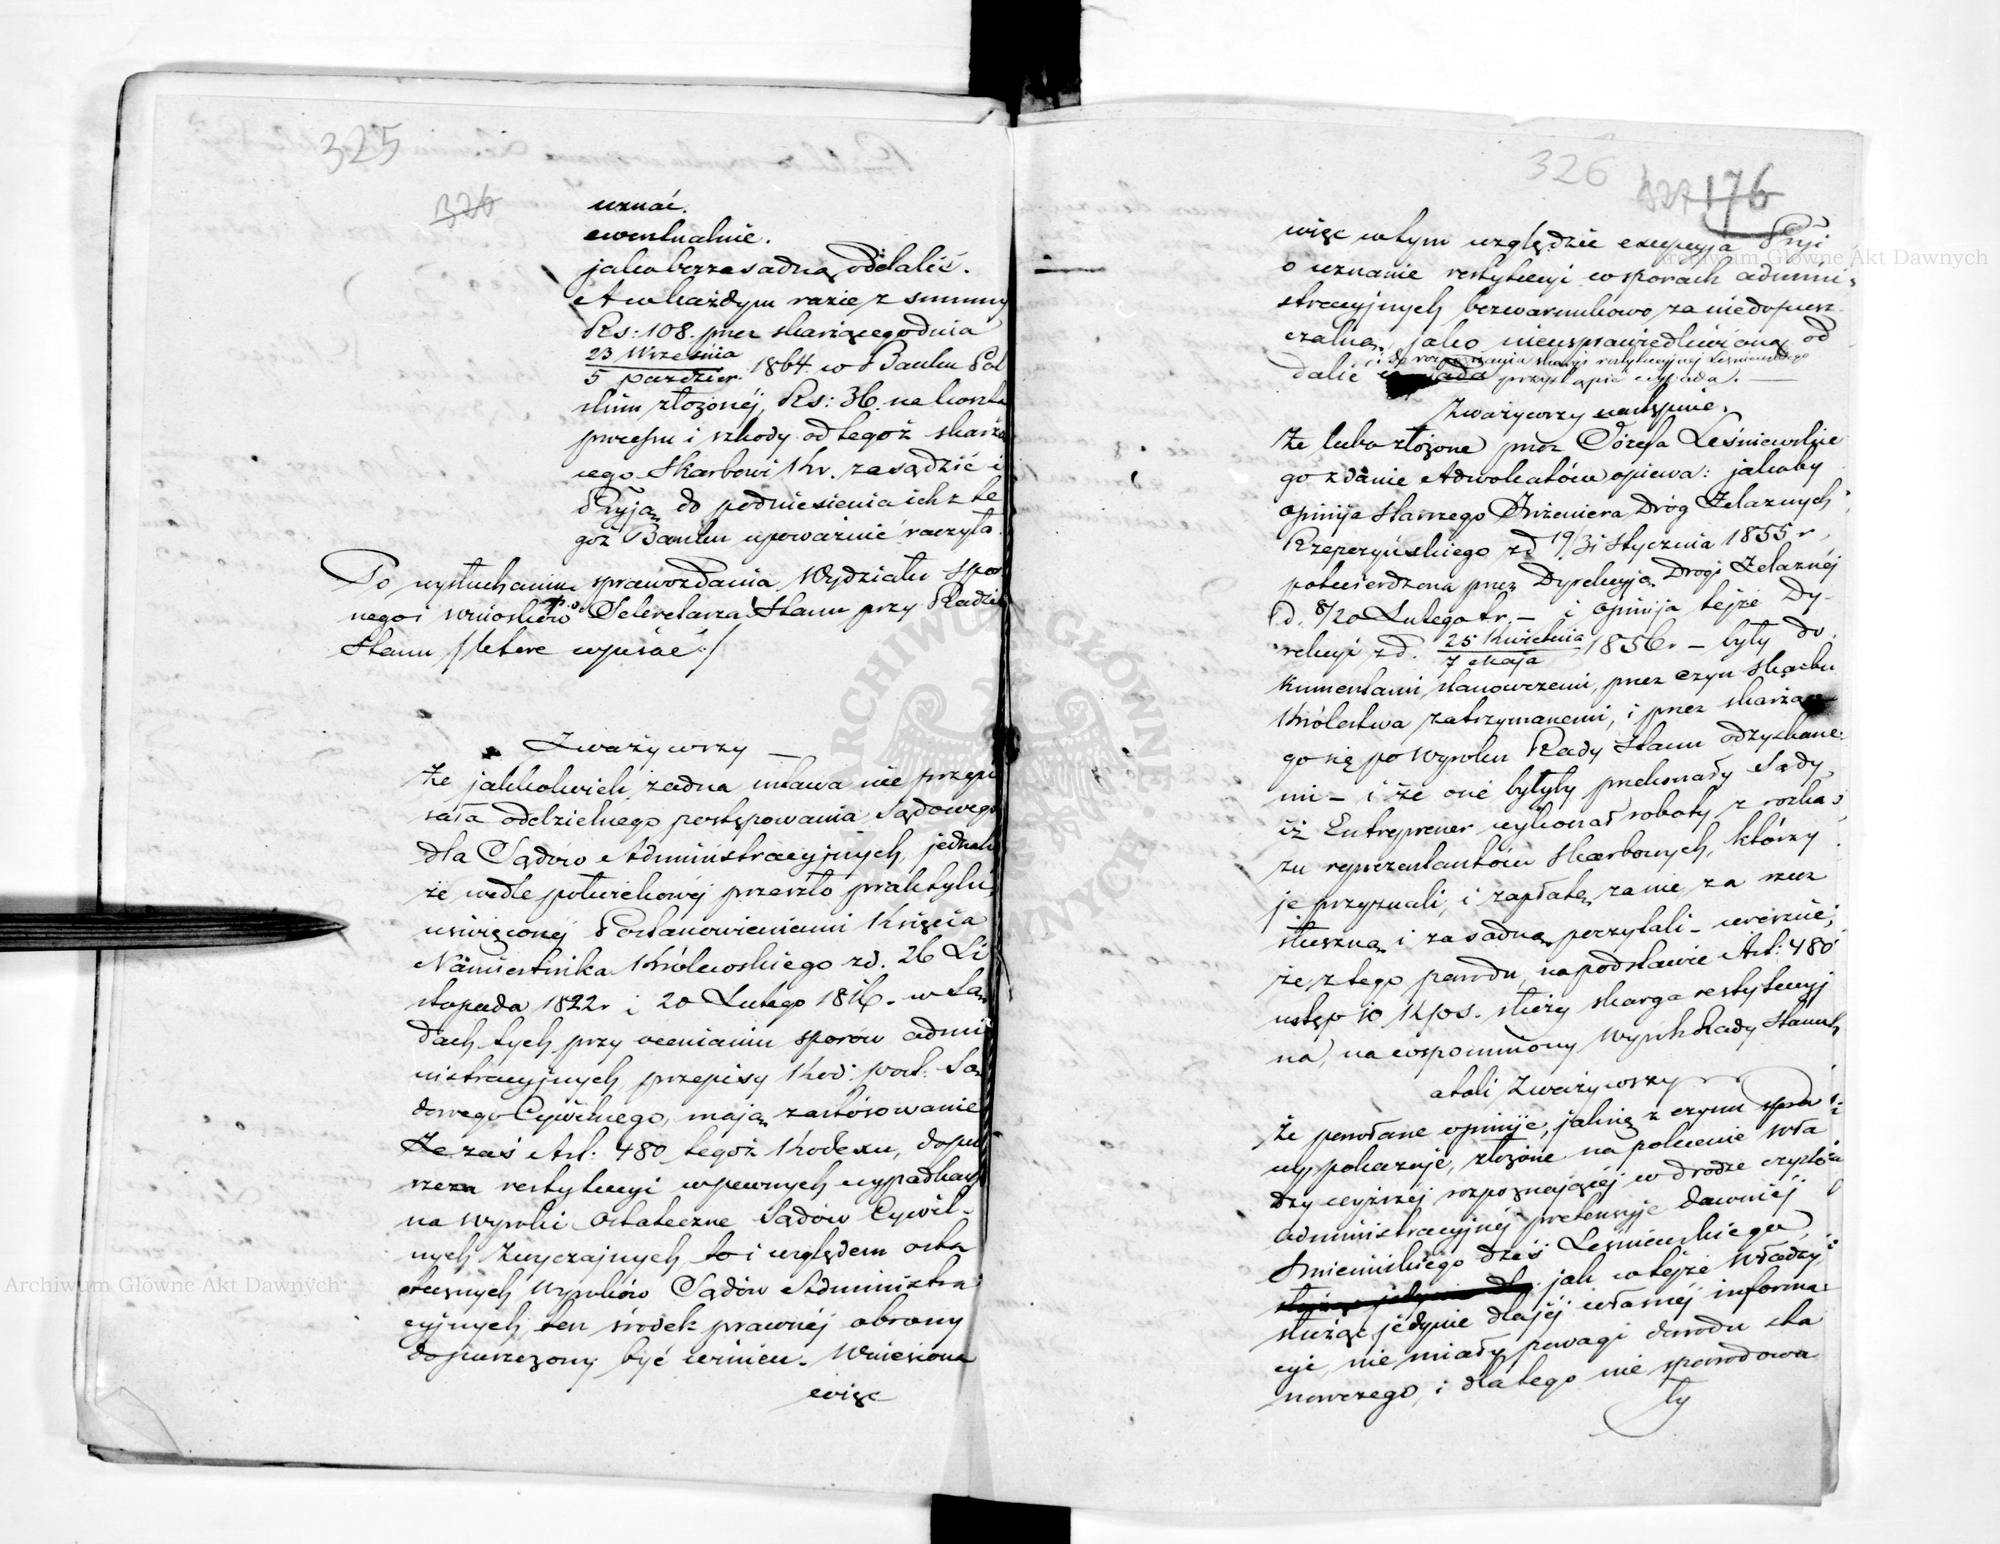 325
326
uznać.
ewentualnie.
jako bezzasadną oddalić.
A w każdym razie z summy
Rs: 108. przez skarżącego dnia
23 Września
5 Paździer. 1864 w Banku Pol
skim złożonéj, Rs: 36. na koszta
procesu i szkody od tegoż skarżą
cego Skarbowi Kr. zasądzić i
Pryją do podniesienia ich z te
goż Banku upoważnić raczyła
Po wysłuchaniu sprawozdania Wydziału spor
nego i wniosków p.o. Sekretarza Stanu przy Radzie
Stanu /które wpisać/
Zważywszy —
Że jakkolwiek żadna ustawa nie przepi
sała oddzielnego postępowania Sądowego
dla Sądów Administracyjnych, jednak
że wedle półwiekowéj przeszło praktyki,
uświęconéj Postanowieniami Księcia
Namiestnika Królewskiego z d. 26 Li
stopada 1822 r i 20 Lutego 1816. w Są
dach tych przy ocenianiu sporów admi
nistracyjnych, przepisy Kod: post: Są
dowego Cywilnego, mają zastósowanie
Że zaś Art: 480 tegoż Kodexu, dopu
szcza restytucyi w pewnych wypadkach
na Wyroki Ostateczne Sądów Cywil-
nych Zwyczajnych, to i względem osta
tecznych Wyroków Sądów Administra
cyjnych, ten środek prawnéj obrony
dopuszczony być winien. Wniesiona
więc
326
327 176
więc w tym względzie excepcyja Pryi
o uznanie restytucyi w sporach admini,
stracyjnych bezwarunkowo za niedopusz
czalną, jako nieusprawiedliwioną od
i do rozpoznania skargi restytucyjnej Leśniewskiego
dalić przystąpić wypada. —
Zważywszy następnie.
Że lubo złożone przez Józefa Leśniewskie
go zdanie Adwokatów opiewa: jakoby
opinija Starszego Inżeniera Dróg Żelaznych
Rzepczyńskiego z d 19/31 Stycznia 1855 r,
potwierdzona przez Dyrekcyją Drogi Żelaznéj
d. 8/20 Lutego t.r. — i opinija tejże Dy-
rekcyi z d. 25 Kwietnia
7 Maja 1856 r — były do
kumentami stanowczemi, przez czyn Skarbu
Królestwa zatrzymanemi, i przez skarżące
go się po Wyroku Rady Stanu odzyskane-
mi — i że one byłyby przekonały Sądy,
iż Entreprener wykonał roboty z rozka
zu reprezentantów Skarbowych, którzy
je przyznali, i zapłatę za nie za rzecz
słuszną i zasadną poczytali — wreszcie,
że z tego powodu, na podstawie Art: 480
ustęp 10 K.p.s. służy skarga restytucyj
na, na wspomniony Wyrok Rady Stanu
atoli Zważywszy
Że powołane opinije, jak się z czynu spra
wy pokazuje, złożone na polecenie Wła
dzy wyższéj rozpoznającéj w drodze czysto
administracyjnéj pretensyje dawniéj
dziś Leśniewskiego,
jak w tejże Władzy,
służąc jedynie dla jéj własnéj informa-
cyi, nie miały powagi dowodu sta
nowczego, i dla tego nie spowodowa
ły
ARCHIWUM GŁÓWNE AKT DAWNYCH
Archiwum Główne Akt Dawnych
Archiwum Główne Akt Dawnych